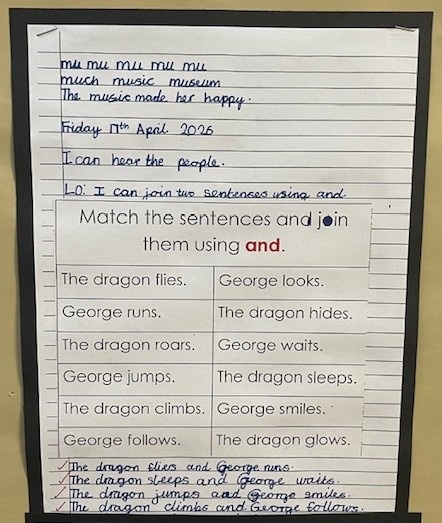 mu mu mu mu mu
much music museum
The music made her happy.
Friday 17th April 2026
I can hear the people.
LO: I can join two sentences using and.
Match the sentences and join
them using and.
The dragon flies. George looks.
George runs. The dragon hides.
The dragon roars. George waits.
George jumps. The dragon sleeps.
The dragon climbs. George smiles.
George follows. The dragon glows.
The dragon flies and George runs.
The dragon sleeps and George waits.
The dragon jumps and George smiles.
The dragon climbs and George follows.